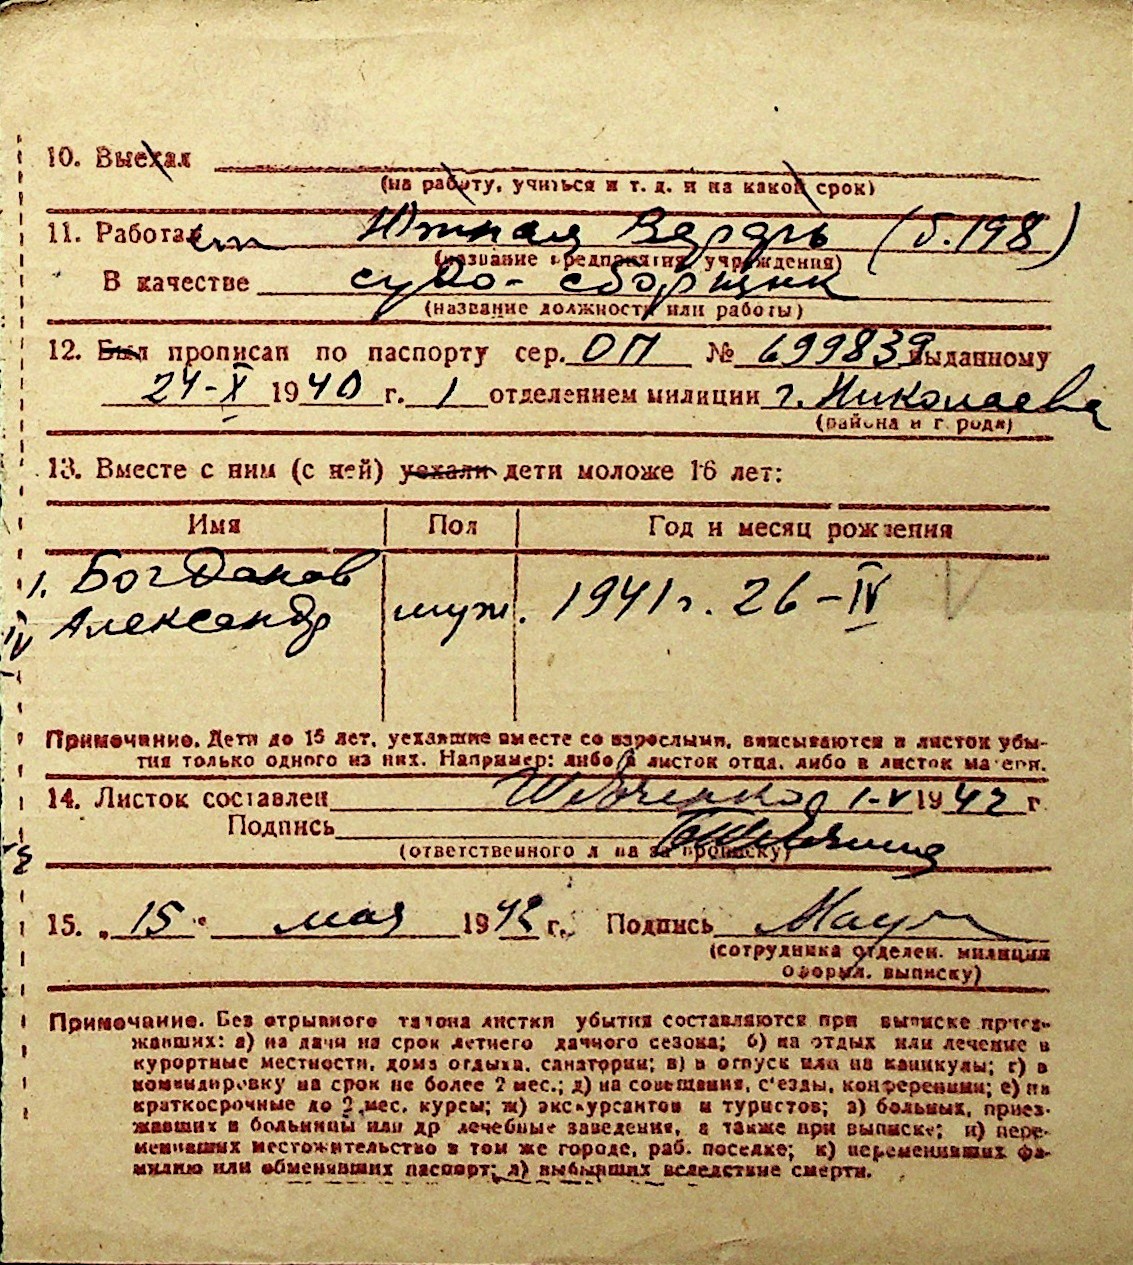 10. Выехал
(на работу, учиться и т. д. и на какой срок)
11. Работает Южная Верфь (б. 198)
(название предприятия, учреждения)
В качестве судо-сборщик
(название должности или работы)
12. Был прописан по паспорту сер. ОП № 699839 выданному
24-X 1940 г. 1 отделением милиции г. Николаева
(района и города)
13. Вместе с ним (с ней) уехали дети моложе 16 лет:
Имя Пол Год и месяц рождения
1. Богданов
Александр муж. 1941 г. 26-IV
Примечание. Дети до 15 лет, уехавшие вместе со взрослыми, вписываются в листок убы-
тия только одного из них. Например: либо в листок отца, либо в листок матери.
14. Листок составлен Шевченко 1-V 1942 г
Подпись
(ответственного л на за прописку)
15. „15" мая 1942 г. Подпись
(сотрудника отделен. милиции
оформл. выписку)
Примечание. Без отрывного талона листки убытия составляются при выписке приез-
жавших: а) на дачи на срок летнего дачного сезона; б) на отдых или лечение в
курортные местности, дома отдыха, санатории; в) в отпуск или на каникулы; г) в
командировку на срок не более 2 мес.; д) на совещания, с'езды, конференции; е) на
краткосрочные до 2 мес. курсы; ж) экскурсантов и туристов; з) больных, приез-
жавших в больницы или др лечебные заведения, а также при выписке; и) пере-
менивших местожительство в том же городе, раб. поселке; к) переменивших фа-
милию или обменивших паспорт; л) выбывших вследствие смерти.